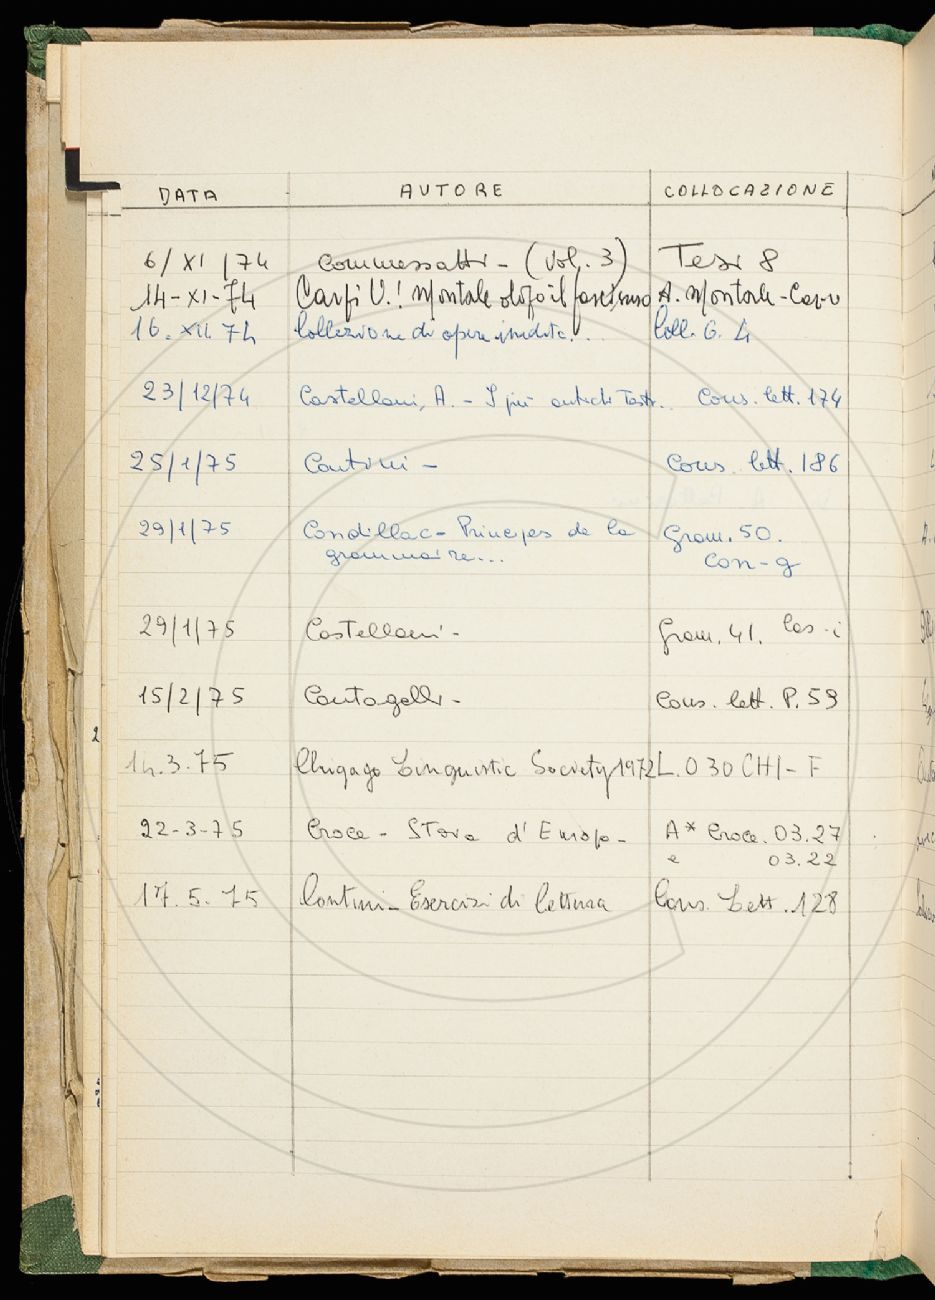 DATA AUTORE COLLOCAZIONE
6/XI/74 Commessatti - (Vol. 3) Tesi 8
14-XI-74 Carpi U.! Montale dopo il fascismo A. Montale-Car-u
16. XII. 74 Collezione di opere inedite... Coll. G. 4
23/12/74 Castellani, A. - I più antichi Testi.. Cons. lett. 174
25/1/75 Contini - Cons. lett. 186
29/1/75 Condillac - Principes de la Gram. 50.
grammaire... Con-g
29/1/75 Castellani - Gram. 41. Cas-i
15/2/75 Cantagalli - Cons. lett. P. 59
14.3.75 Chigago Linguistic Society 1972 L. 030 CHI-F
22-3-75 Croce - Storia d'Europa - A* Croce. 03.27
e 03.22
17. 5. 75 Contini - Esercizi di lettura Cons. Lett. 128
2